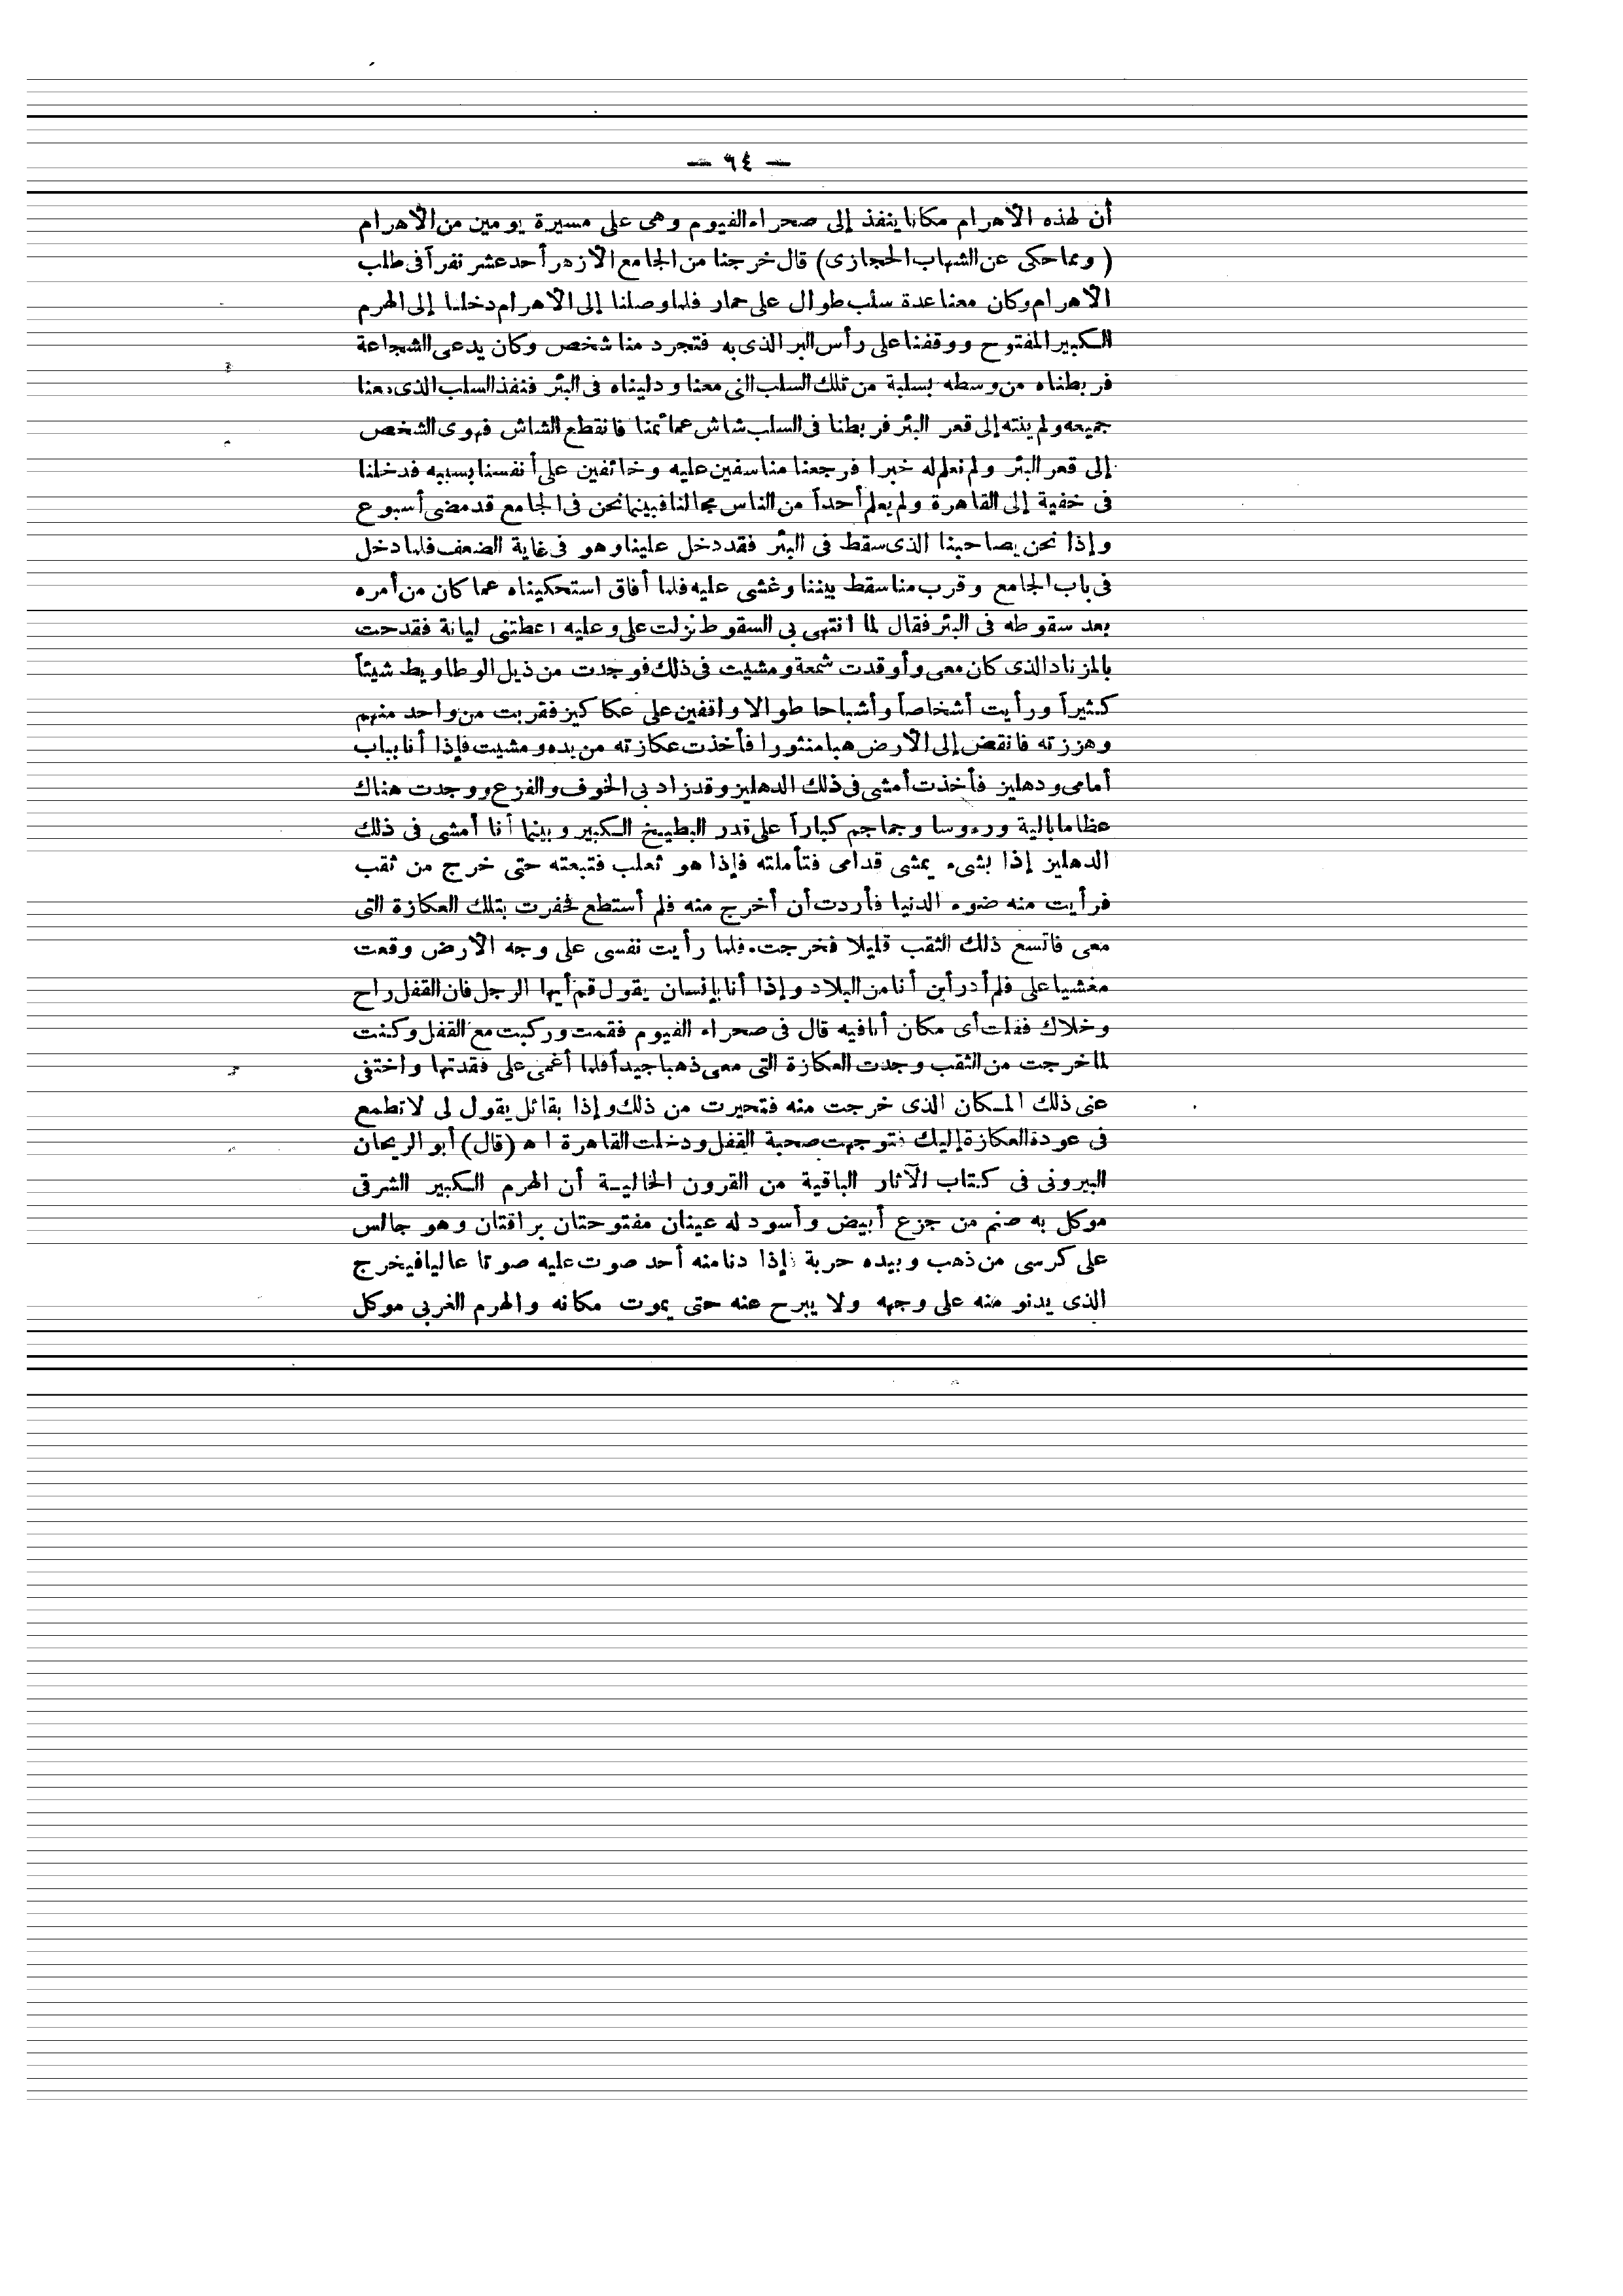 — ٦٤ —
أن لهذه الأهرام مكانا ينفذ إلى صحراء الفيوم وهى على مسيرة يومين من الأهرام
( ومما حكى عن الشهاب الحجازى) قال خرجنا من الجامع الأزهر أحد عشر نفرآ فى طلب
الأهرام وكان معنا عدة سلب طوال على حمار فلما وصلنا إلى الأهرام دخلنا إلى الهرم
الكبير المفتوح ووقفنا على رأس البر الذى به فتجرد منا شخص وكان يدعى الشجاعة
فربطناه من وسطه بسلبة من تلك السلب التى معنا ودليناه فى البئر فنفذ السلب الذى معنا
جميعه ولم ينته إلى قعر البئر فربطنا فى السلب شاش عمائمنا فانقطع الشاش فهوى الشخص
إلى قعر البئر ولم نعلم له خبرا فرجعنا متأسفين عليه وخائفين على أنفسنا بسببه فدخلنا
فى خفية إلى القاهرة ولم يعلم أحداً من الناس بحالنا فبينما نحن فى الجامع قد مضى أسبوع
وإذا نحن بصاحبنا الذى سقط فى البئر فقد دخل علينا وهو فى غاية الضعف فلما دخل
فى باب الجامع وقرب منا سقط بيننا وغشى عليه فلما أفاق استحكيناه عما كان من أمره
بعد سقوطه فى البئر فقال لما انتهى بى السقوط نزلت على وعليه اعطتنى ليانة فقدحت
بالمزناد الذى كان معى وأوقدت شمعة ومشيت فى ذلك فوجدت من ذيل الوطاويط شيئاً
كثيراً ورأيت أشخاصاً وأشباحا طوالا واقفين على عكاكيز فقربت من واحد منهم
وهززته فانقض إلى الأرض هبا منثورا فأخذت عكازته من يده ومشيت فإذا أنا بباب
أمامى ودهليز فأخذت أمشى فى ذلك الدهليز وقد زاد بى الخوف والفزع ووجدت هناك
عظاما بالية ورءوسا وجماجم كباراً على قدر البطيخ الكبير وبينما أنا أمشى فى ذلك
الدهليز إذا بشىء يمشى قدامى فتأملته فإذا هو ثعلب فتبعته حتى خرج من ثقب
فرأيت منه ضوء الدنيا فأردت أن أخرج منه فلم أستطع فحفرت بتلك العكازة التى
معى فاتسع ذلك الثقب قليلا فخرجت. فلما رأيت نفسى على وجه الأرض وقعت
مغشيا على فلم أدر أين أنا من البلاد وإذا أنا بإنسان يقول قم أيها الرجل فان القفل راح
وخلاك فقلت أى مكان أنا فيه قال فى صحراء الفيوم فقمت وركبت مع القفل وكنت
لما خرجت من الثقب وجدت العكازة التى معى ذهبا جيدآ فلما أغمى على فقدتها واختفى
عنى ذلك المكان الذى خرجت منه فتحيرت من ذلك وإذا بقائل يقول لى لا تطمع
فى عودة العكازة إليك فتوجهت صحبة القفل ودخلت القاهرة اه (قال) أبو الريحان
البيرونى فى كتاب الآثار الباقية من القرون الخالية أن الهرم الكبير الشرقى
موكل به صنم من جزع أبيض وأسود له عينان مفتوحتان براقتان وهو جالس
على كرسى من ذهب وبيده حربة إذا دنا منه أحد صوت عليه صوتا عاليا فيخرج
الذى يدنو منه على وجهه ولا يبرح عنه حتى يموت مكانه والهرم الغربى موكل